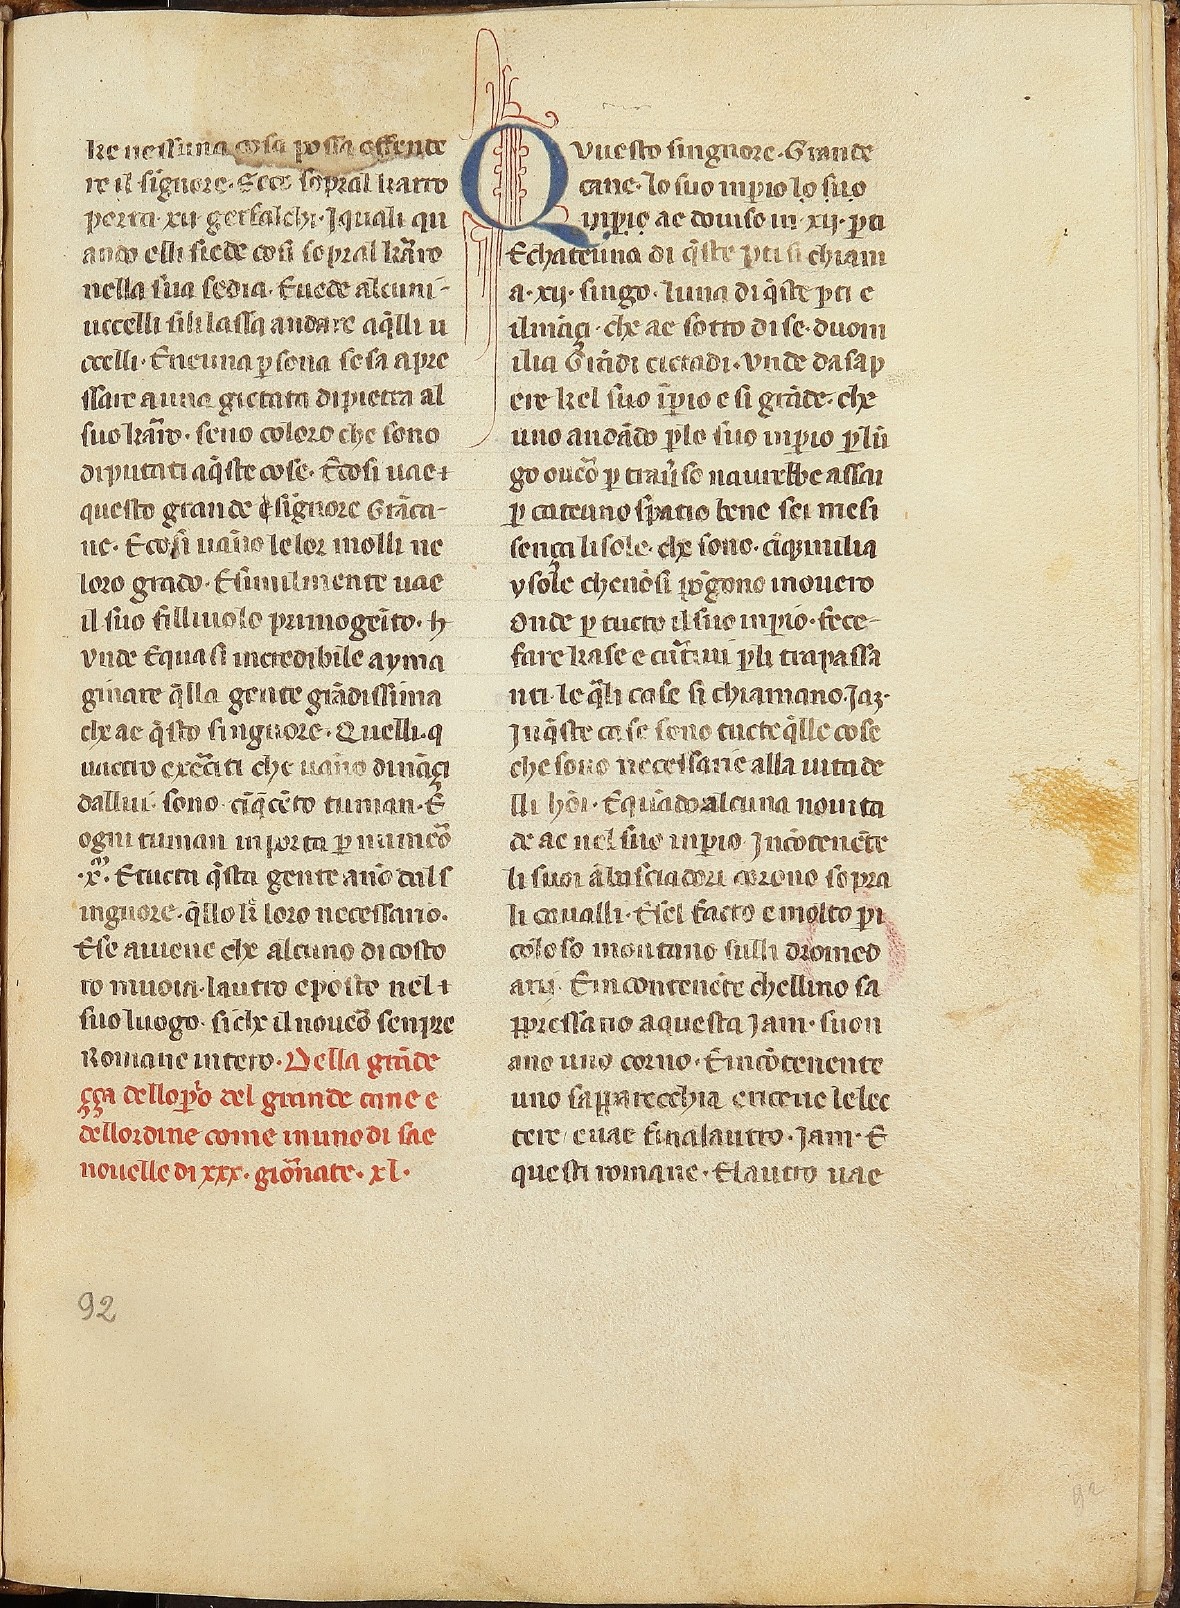 ke nessuna cosa possa offende
re il signore· Ecco sopral karro
porta· xij· gerfalchi· Jquali qu
ando elli siede cosi sopral kār̄o
nella sua sedia· Euede alcuni-
uccelli sili lassa andare aq̄lli u
ccelli· Eneuna ꝑsona sesa apre
ssare a una gictata di pietra al
suo kār̄o· seno coloro che sono
diputati aq̄ste cose· Ecosi uae
questo grande signore Grāca-
ne· Ecosi uāno lelor molli ne
loro grado· Esimilmente uae
il suo filliuolo primogēito· h
vnde Equasi incredibile ayma
ginare q̄lla gente grādissima
che ae q̄sto singnore· Quelli· q
uactro exērciti che uāno dināçi
dallui· sono· cīq̄cēto tuman· E
ogni tuman inporta ꝑ numēō
·x̄m̄· Etucta q̄sta gente anō dals
ingnore· q̄llo li loro necessario·
Ese auiene che alcuno di costo
ro muoia· lautro eposto nel
suo luogo· siche il nouēō senpre
Romane intero· Della grāde
çça dello ꝑ̄o del grande cane e
dellordine come inuno di sae
nouelle di xxx· giōrnate· xl·
Qvuesto singnore· Grande
cane· lo suo inꝑio lo suo
inpio ae douiso in· xij· ꝑti
Echateuna di q̄ste ꝑti si chiam
a· xij· singo· luna di q̄ste ꝑti e
ilmāçi· che ae sotto di se· duom
ilia Grādi cictadi· vnde dasap
ere kel suo īꝑio e si grāde· che
uno andādo ꝑlo suo inꝑio ꝑlū
go ouēō ꝑ trau̅so naurebbe assai
ꝑ cateuno spatio bene sei mesi
sença lisole· che sono· cīq̄ milia
ysole che nōsi pōgono inouero
Onde ꝑ tucto il suo inꝑio· fece-
fare kase e ꝑli trapassa
nti· le q̄li case si chiamano· Jaz·
Jnq̄ste case sono tucte q̄lle cose
che sono necessarie alla uita de
lli hōi· Equādo alcuna nouita
de ae nel suo inꝑio Jncōtenēte
li suoi ābasciadori corono sopra
li caualli· Esel facto e molto pi
coloso montano sulli dromed
arij· Eincontenēte chellino sa
ꝑpressano aquesta Jam· suon
ano uno corno· Eincōtenente
uno saꝑparecchia ericeue lelec
tere· euae finalautro· Jam· E
questi romane· Elautro uae
92
92